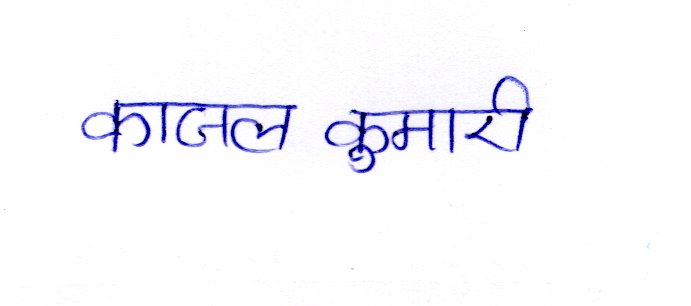 काजल कुमारी